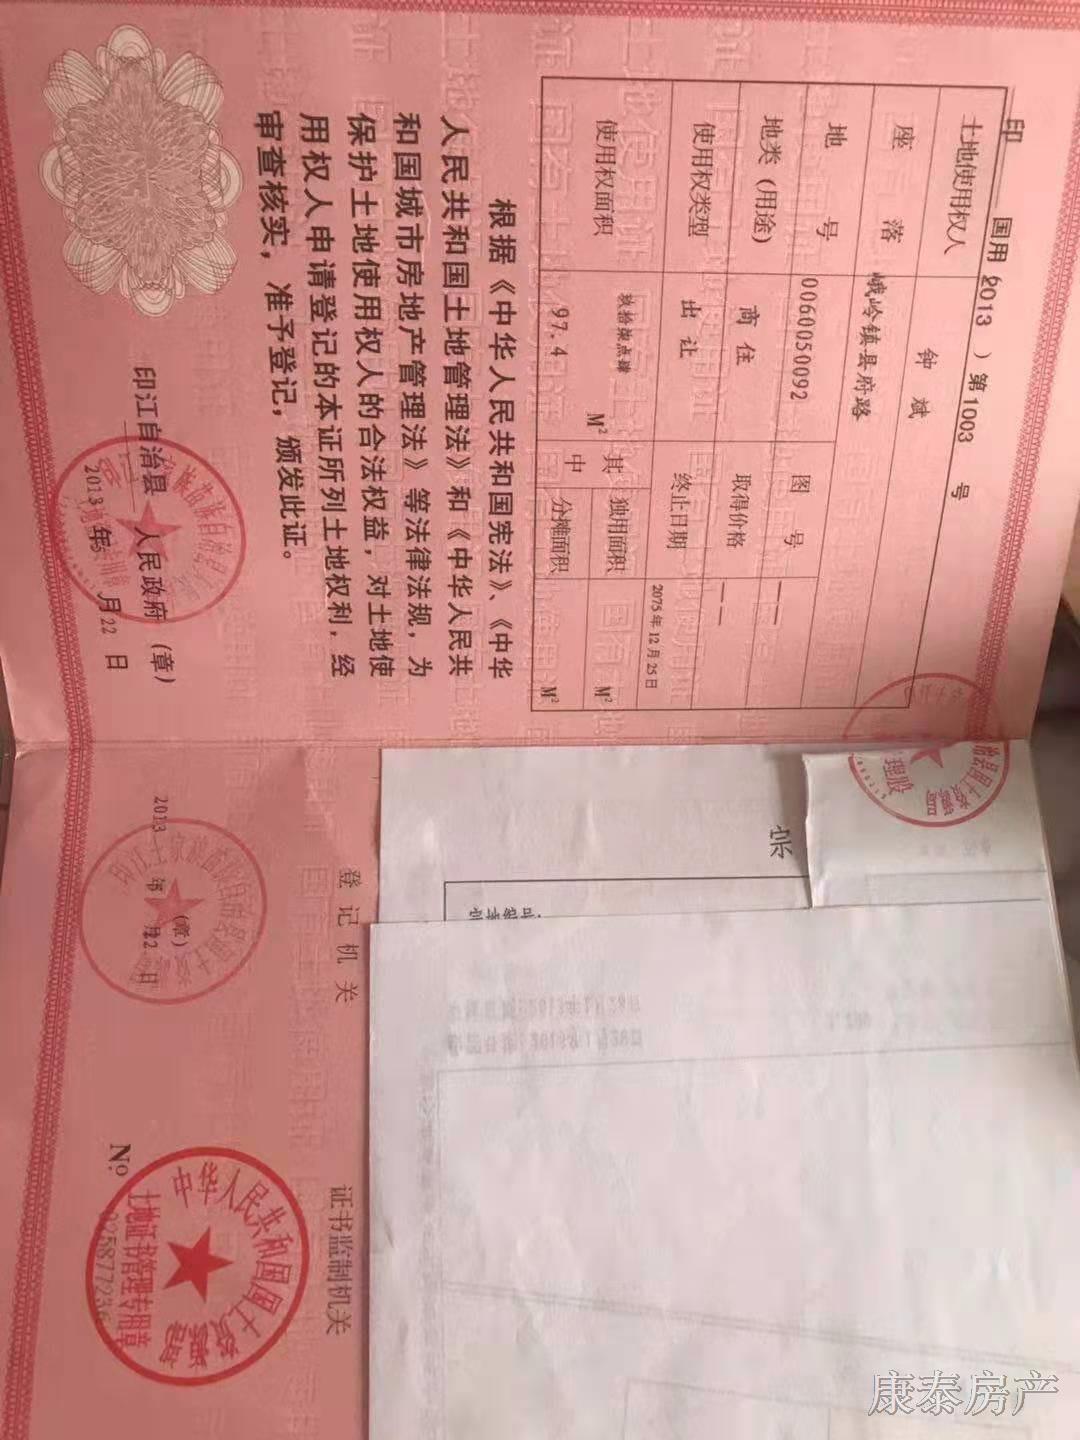 印 国用（2013）第1003 号
土地使用权人 钟斌
座落 峨岭镇县府路
地号 0060050092 图号 ——
地类（用途） 商住 取得价格 ——
使用权类型 出让 终止日期 2075年12月25日
使用权面积 玖拾柒点肆 97.4 M² 其中 独用面积 M²
分摊面积 M²
根据《中华人民共和国宪法》、《中华
人民共和国土地管理法》和《中华人民共
和国城市房地产管理法》等法律法规，为
保护土地使用权人的合法权益，对土地使
用权人申请登记的本证所列土地权利，经
审查核实，准予登记，颁发此证。
印江自治县 人民政府（章）
2013年5月22日
理股
登记机关
（章）
2013年 月22日
证书监制机关
中华人民共和国国土资源部
土地证书管理专用章
№ 025877236
康泰房产